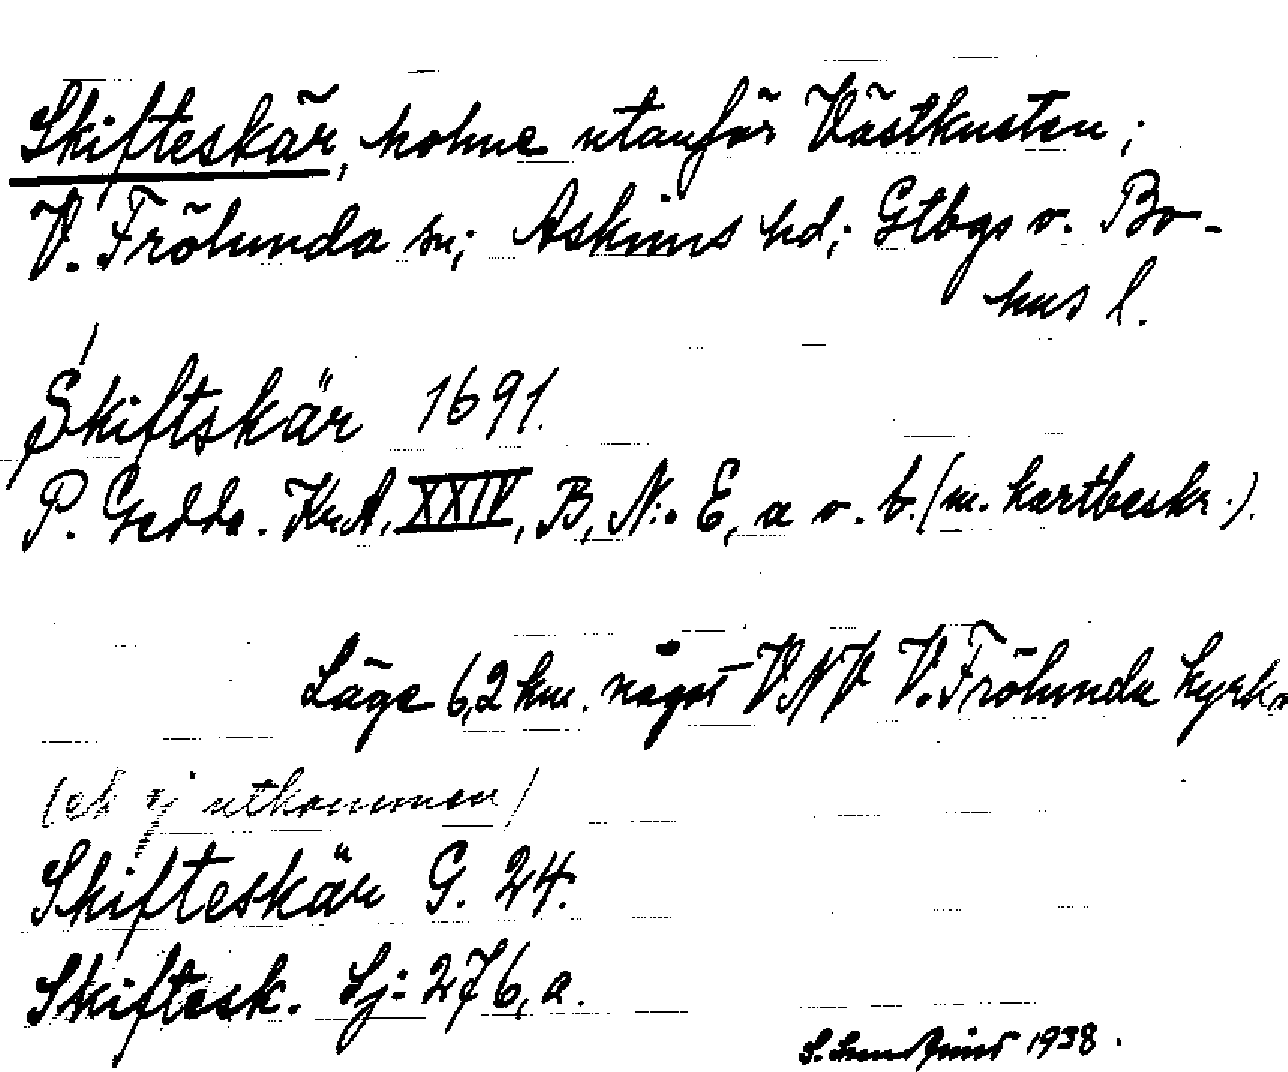 Skifteskär, holme utanför Västkusten;
V. Frölunda sn; Askims hd; Gtbgs o. Bo-
hus l.
Skiftskär 1691.
P. Gedda. Kr.A. XXIV, B, N:o E, a o. b. (m. kartbeskr.).
Läge 6,2 km. något VNV V. Frölunda kyrka
(ek ej utkommen)
Skifteskär G. 24.
Skiftesk. Sj: 276, a.
S. 1938.